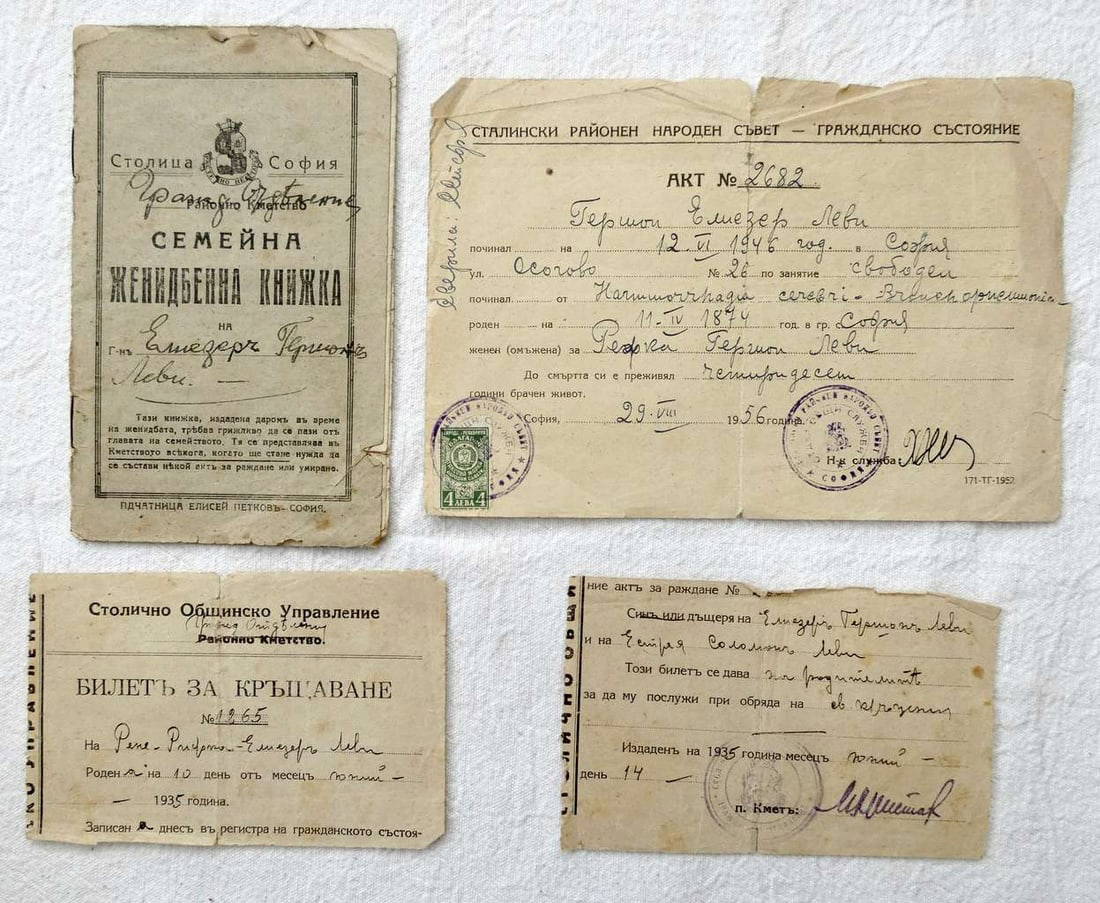 Столица София
Районно Кметство
СЕМЕЙНА
ЖЕНИДБЕННА КНИЖКА
НА
Г-нъ Елиезеръ Гершонъ
Леви. —
Тази книжка, издадена даромъ въ време
на женидбата, трѣбва грижливо да се пази отъ
главата на семейството. Тя се представлява въ
Кметството всѣкога, когато ще стане нужда да
се състави нѣкой актъ за раждане или умирано.
ПДЧАТНИЦА ЕЛИСЕЙ ПЕТКОВЪ - СОФИЯ.
СТАЛИНСКИ РАЙОНЕН НАРОДЕН СЪВЕТ — ГРАЖДАНСКО СЪСТОЯНИЕ
АКТ № 2682
Гершон Елиезер Леви
починал на 12 VI 1946 год. в София
ул. Осогово № 26 по занятие свободен
починал от
роден на 11-IV 1874 год. в гр. София
женен (омъжена) за Гершон Леви
До смъртта си е преживял четиридесет
години брачен живот.
София, 29-VIII 1956 година.
Н-к служба
171-ТГ-1952
4 ЛЕВА 4
Столично Общинско Управление
Районно Кметство.
БИЛЕТЪ ЗА КРЪЩАВАНЕ
№ 1265
На Рене- -Елиезеръ Леви
Родена на 10 день отъ месецъ юний -
- 1935 година.
Записана днесъ въ регистра на гражданското състоя-
ние актъ за раждане №
Синъ или дъщеря на Елиезеръ Гершонъ Леви
и на Естрея Соломонъ Леви
Този билетъ се дава на родителитѣ
за да му послужи при обряда на св. кръщение
Издаденъ на 1935 година месецъ юний -
день 14 —
п. Кметъ: